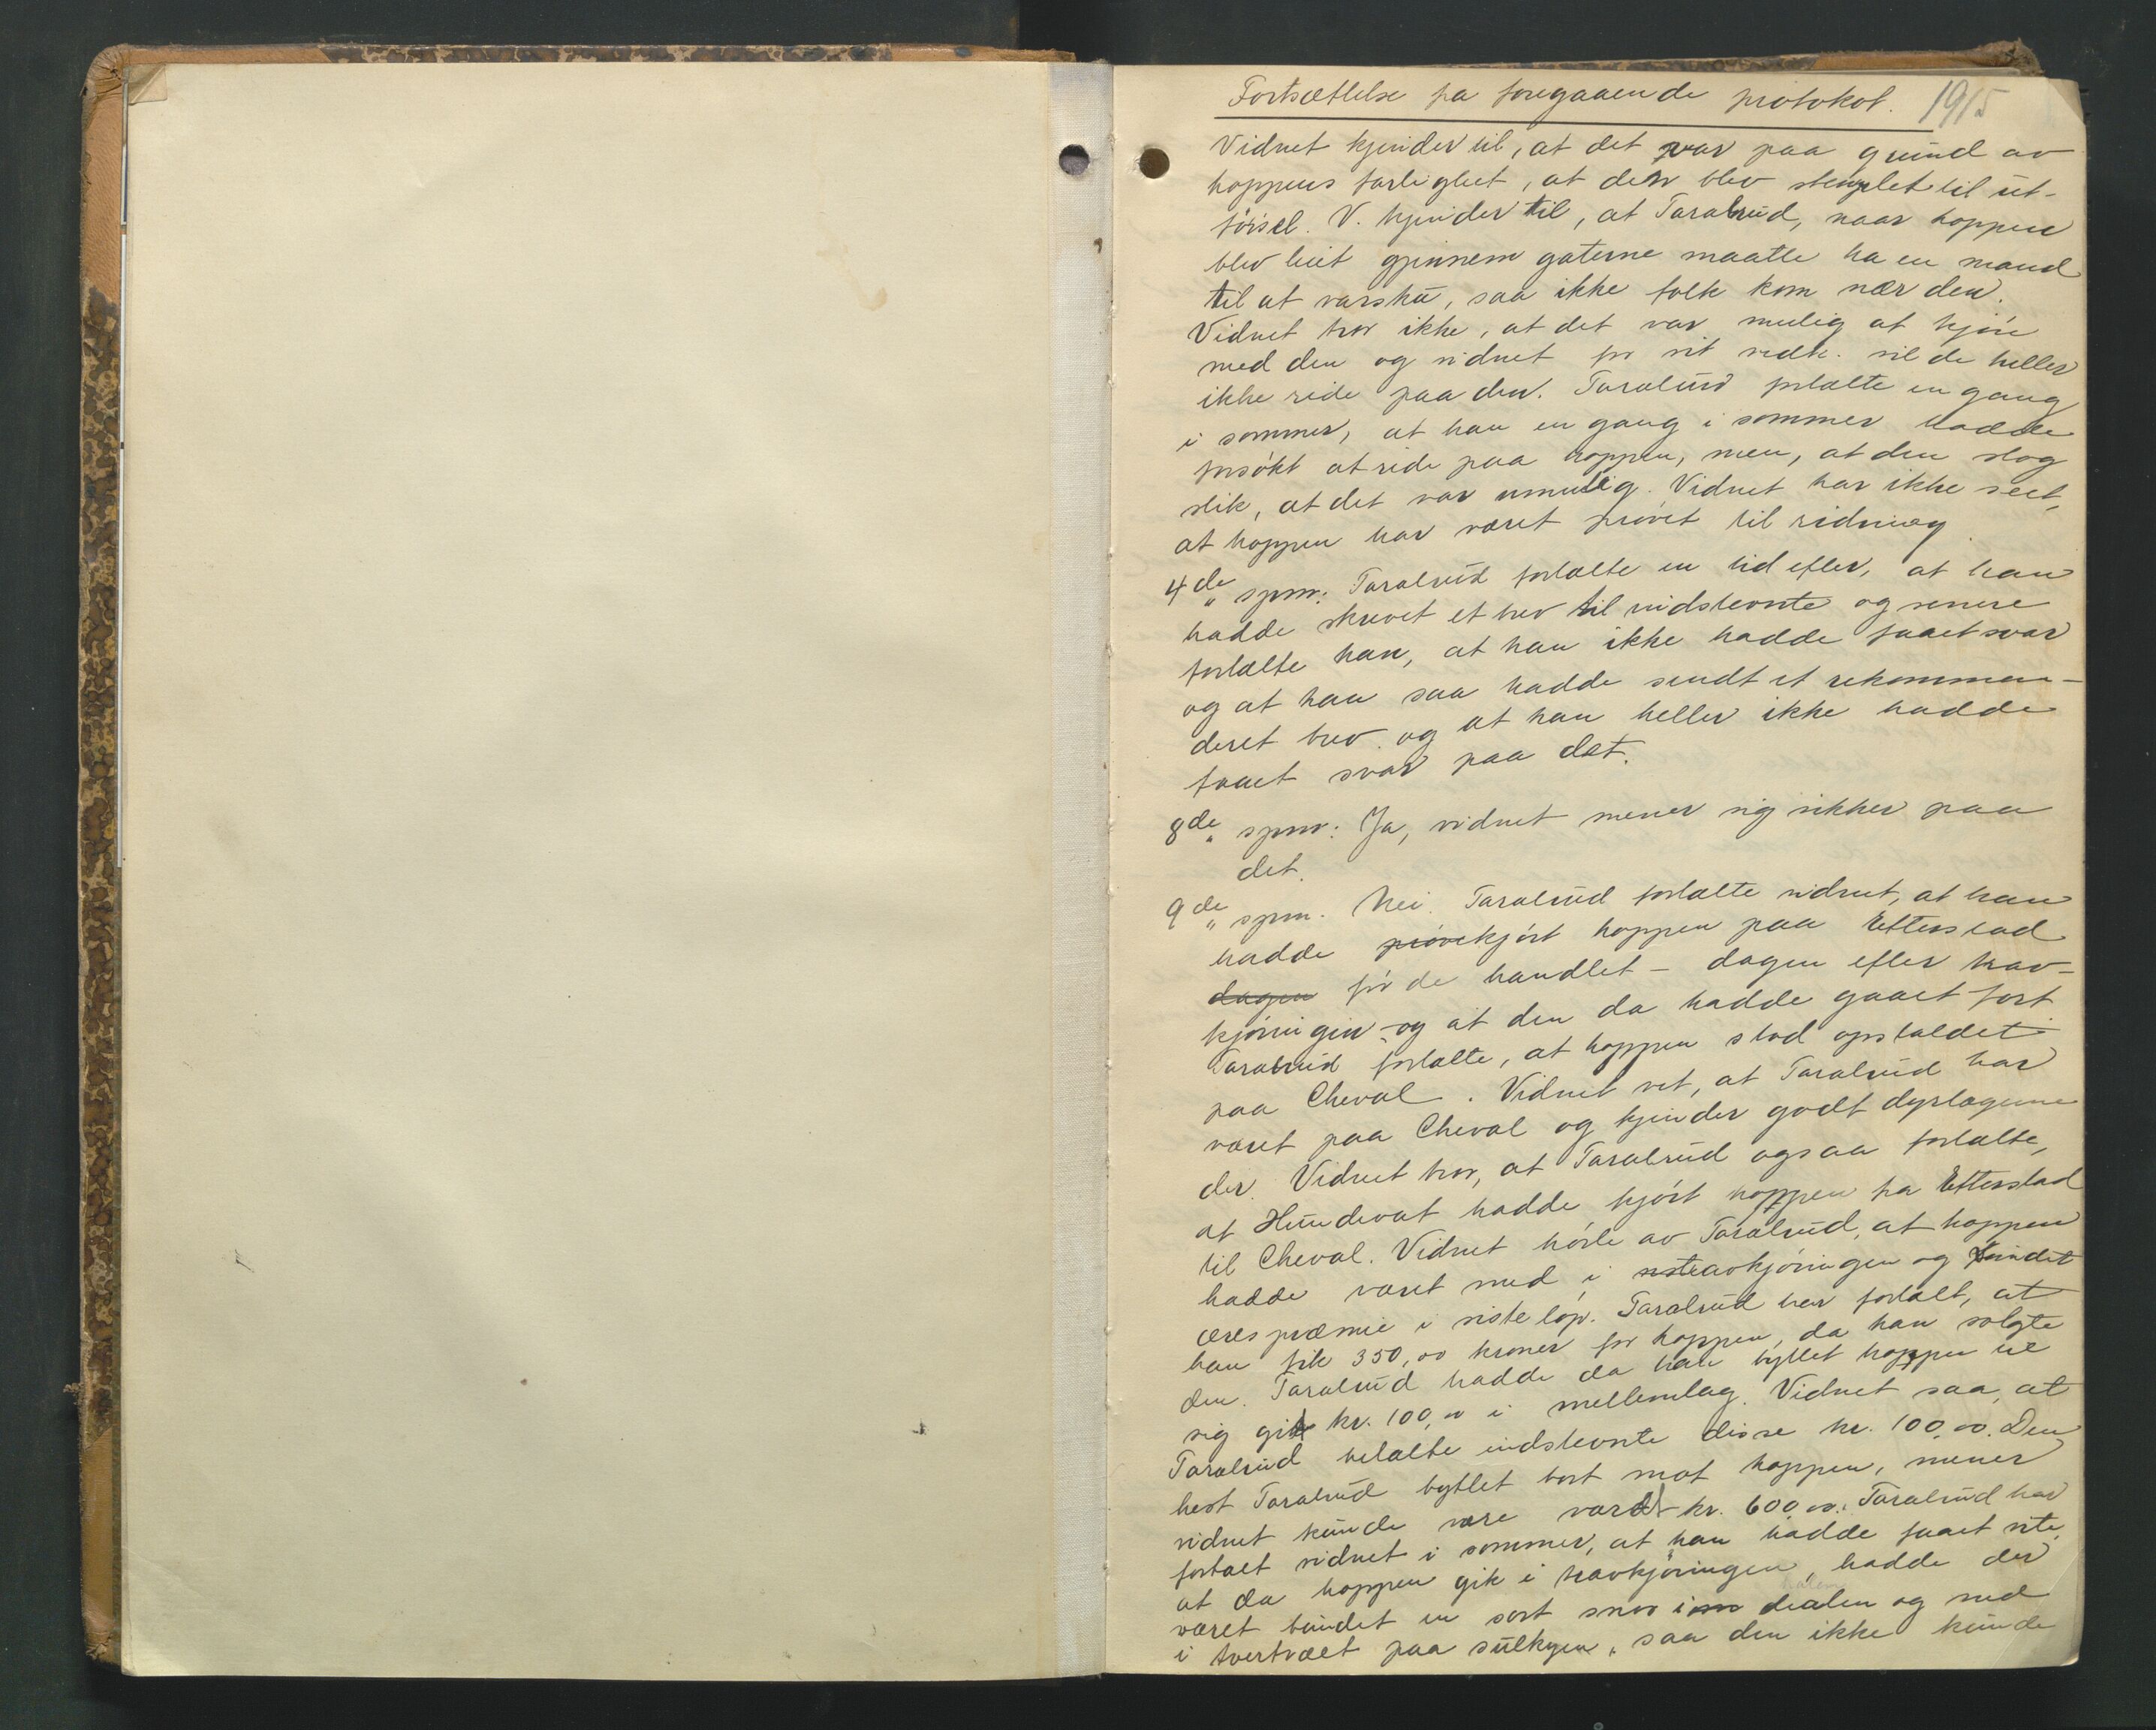 Fortsættelse fra foregaaende protokol. 1915
Vidnet kjender til, at det var paa grund av
hoppens farlighet, at den blev stemplet til ut-
førsel. V. kjender til, at Taralrud, naar hoppen
blev leiet gjennem gaterne maatte ha en mand
til at varsku, saa ikke folk kom nær den.
Vidnet tror ikke, at det var mulig at kjøre
med den og vidnet for sit vedk. vilde heller
ikke ride paa den. Taralrud fortalte en gang
i sommer, at han en gang i sommer hadde
forsøkt at ride paa hoppen, men, at den slog
slik, at det var umulig. Vidnet har ikke seet,
at hoppen har været prøvet til ridning
4de spm: Taralrud fortalte en tid efter, at han
hadde skrevet et brev til indstevnte og senere
fortalte han, at han ikke hadde faaet svar
og at han saa hadde sendt et rekomman-
deret brev og at han heller ikke hadde
faaet svar paa det.
8de spm: Ja, vidnet mener sig sikker paa
det.
9de spm. Nei. Taralrud fortalte vidnet, at han
hadde prøvekjørt hoppen paa Etterstad
dagen før de handlet – dagen efter trav-
kjøringen – og at den da hadde gaaet fort
Taralrud fortalte, at hoppen stod opstaldet
paa Cheval. Vidnet vet, at Taralrud har
været paa Cheval og kjender godt dyrlægerne
der. Vidnet tror, at Taralrud ogsaa fortalte,
at Hundevat hadde kjørt hoppen fra Etterstad
til Cheval. Vidnet hørte av Taralrud, at hoppen
hadde været med i travkjøringen og vundet
ærespræmie i siste løp. Taralrud har fortalt, at
han fik 350,00 kroner for hoppen, da han solgte
den. Taralrud hadde da han byttet hoppen til
sig git kr. 100,00 i mellemlag. Vidnet saa, at
Taralrud betalte indstevnte disse kr. 100,00. Den
hest Taralrud byttet bort mot hoppen, mener
vidnet kunde være værdt kr. 600,00. Taralrud har
fortalt vidnet i sommer, at han hadde faaet vite,
at da hoppen gik i travkjøringen, hadde der
været bundet en sort snor i halen og ned
i tvertræet paa sulkyen, saa den ikke kunde